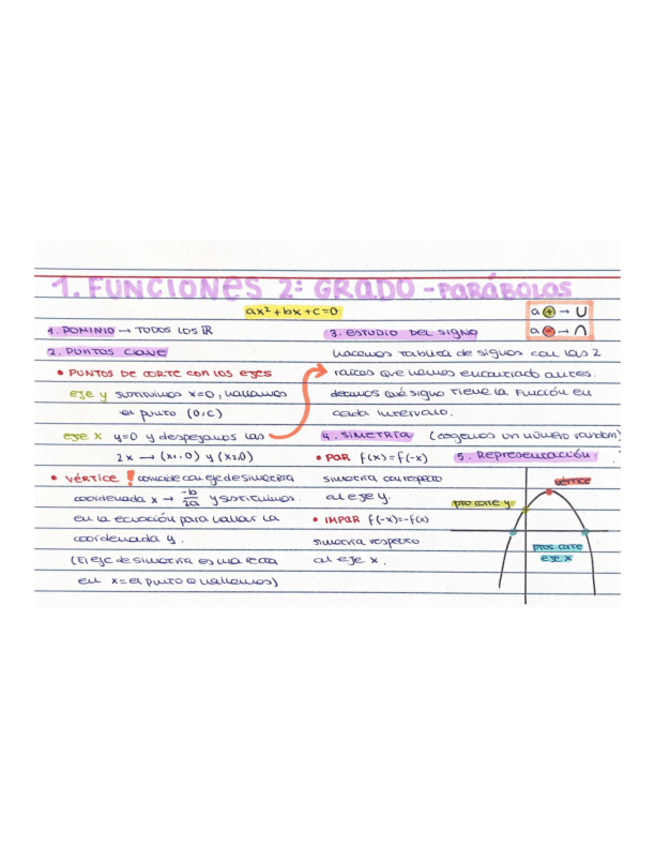 1. FUNCIONES 2º GRADO - PARÁBOLAS
ax² + bx + c = 0
a ⊕ → ∪
a ⊖ → ∩
1. DOMINIO → TODOS LOS ℝ
2. PUNTOS CLAVE
• PUNTOS DE CORTE CON LOS EJES
eje y sustituimos x=0, hallamos
el punto (0,C)
eje x y=0 y despejamos las
2x → (x₁,0) y (x₂,0)
• VÉRTICE ! coincide con eje de simetría
coordenada x → -b/2a y sustituimos
en la ecuación para hallar la
coordenada y.
(El eje de simetría es una recta
en x = el punto q hallemos)
3. ESTUDIO DEL SIGNO
hacemos tablita de signos con las 2
raíces que hemos encontrado antes.
decimos qué signo tiene la función en
cada intervalo.
4. SIMETRÍA (cogemos un número random)
• PAR f(x)=f(-x)
simetría con respecto
al eje y.
• IMPAR f(-x)=-f(x)
simetría respecto
al eje x.
5. Representación
vértice
pto corte y
ptos corte
eje x